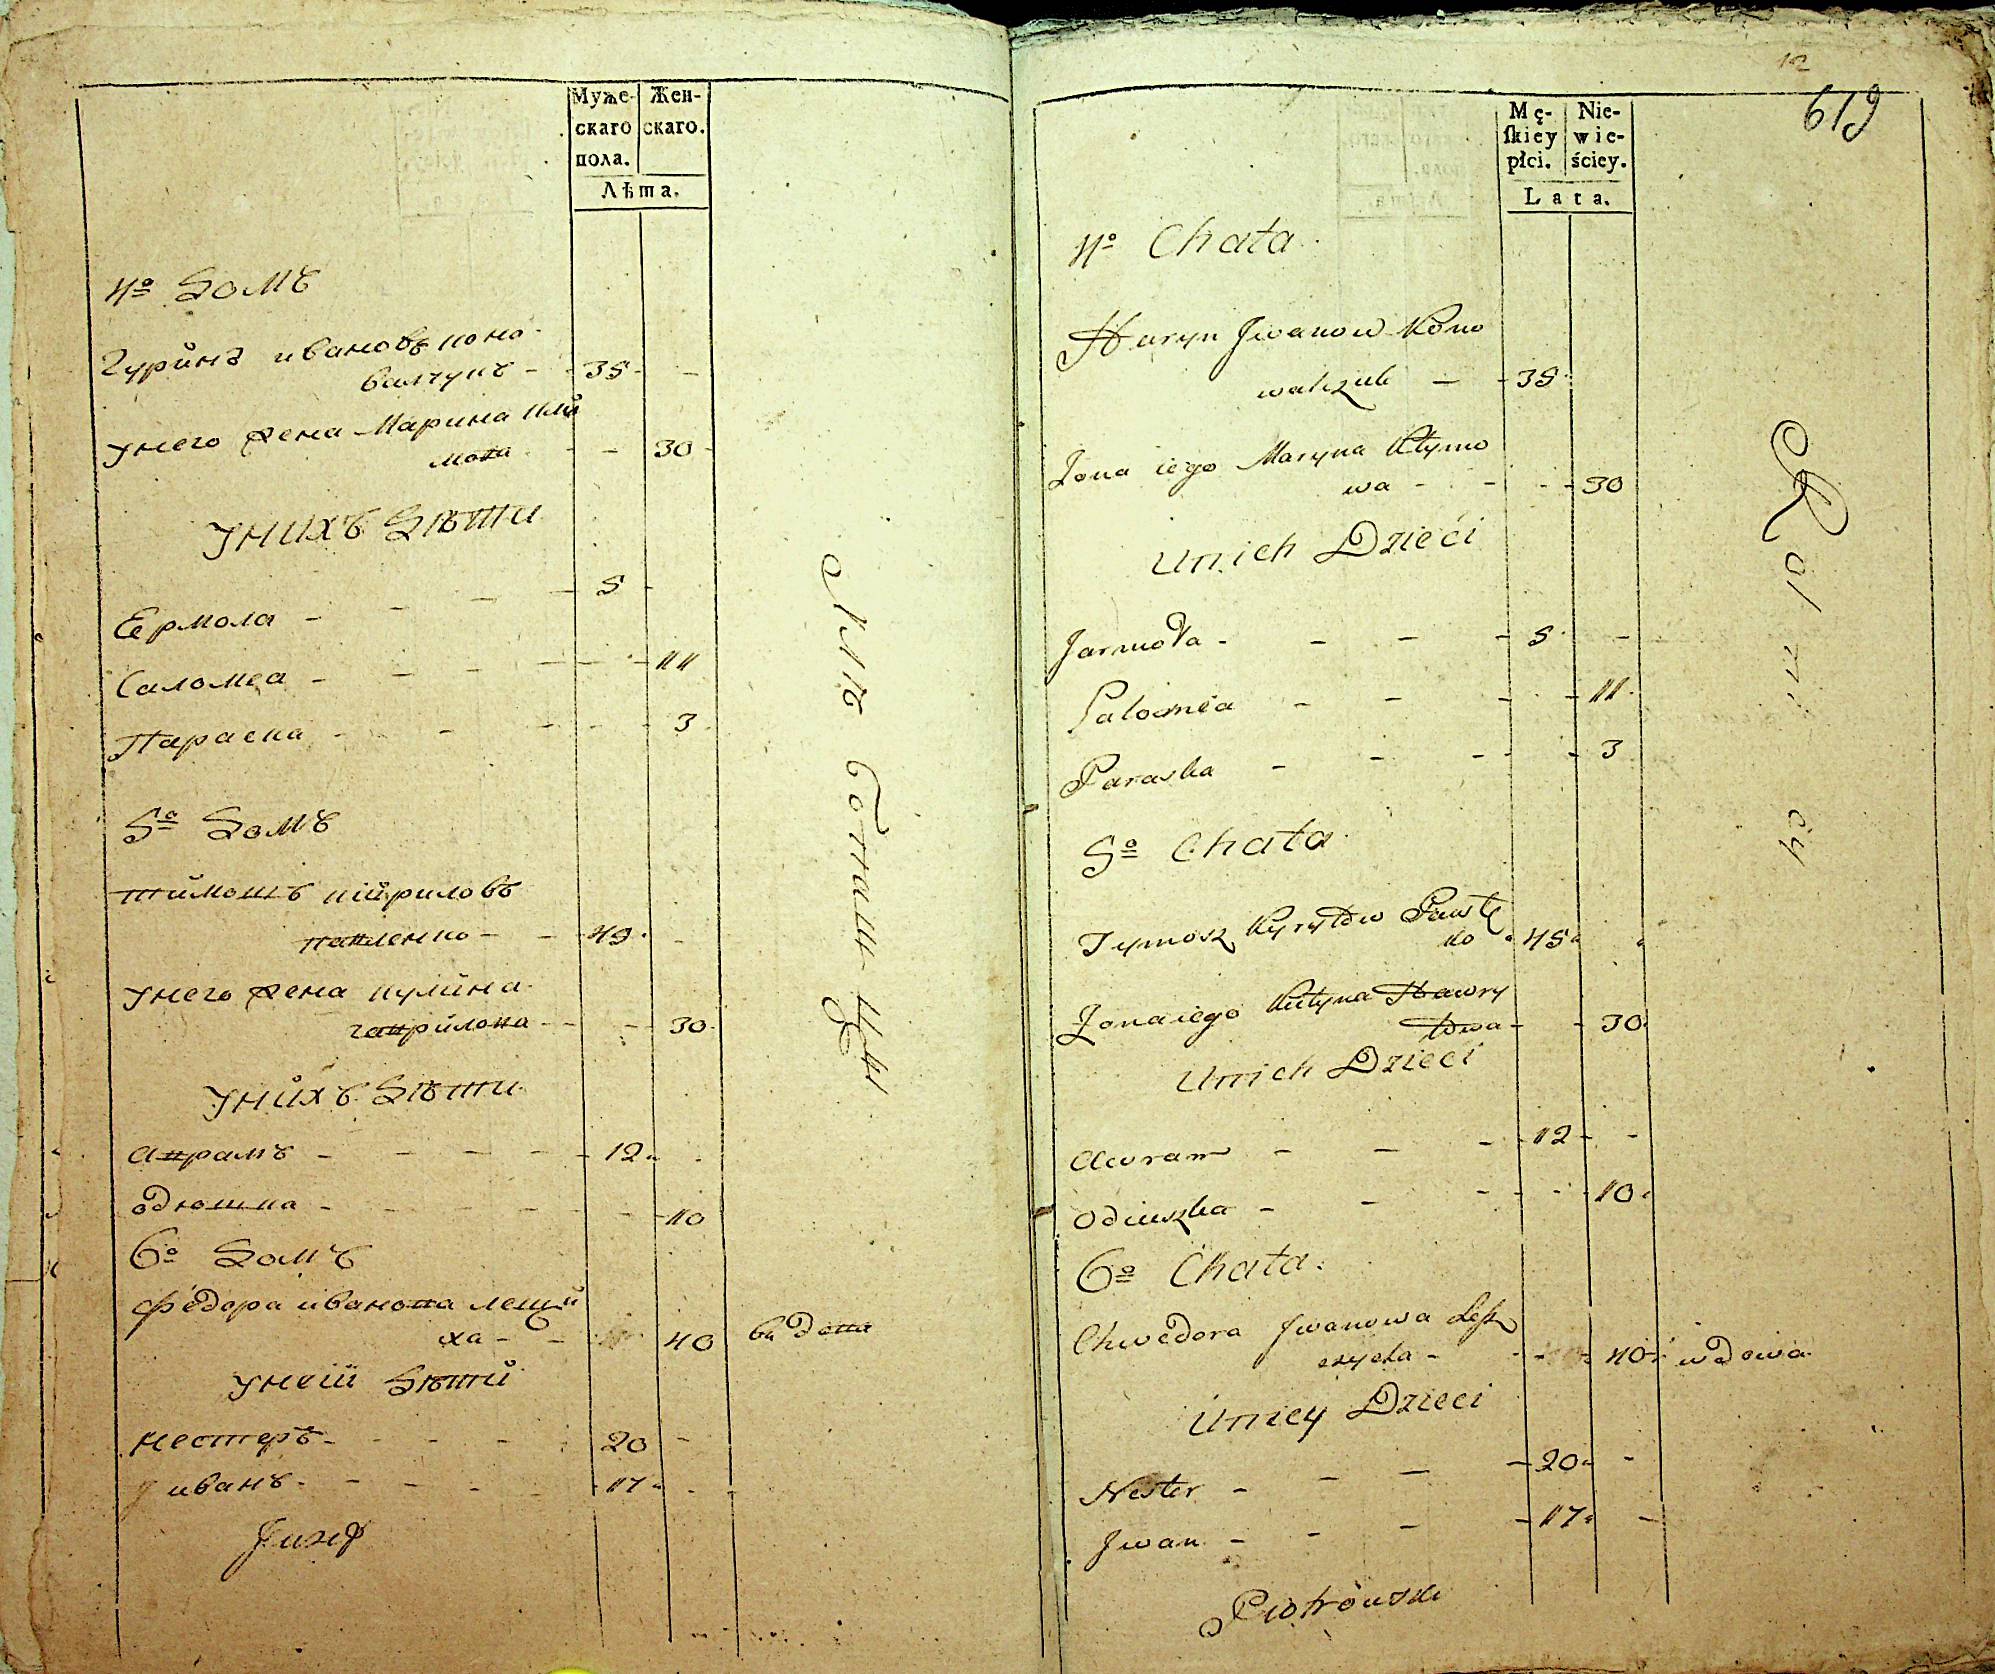 Муже-
скаго
пола.
Жен-
скаго.
Лѣта.
4º Домъ
Гурйнъ ивановъ коно-
валчукъ - - 35 - -
Унего жена Марина клй
мова - - 30 -
Унихъ Дѣти
Ермола - - - - 5 -
Саломеа - - - - - 11
Параска - - - - - 3
5º Домъ
тймошъ кйриловъ
павленко - - 45 -
Унего жена кулйна
гаврилова - - - 30
Унйхъ Дѣти
аврамъ - - - - - 12 -
одюшка - - - - - - 10
6º Домъ
федора иванова лещй
ха - - 40 вдова
Унеий Дѣтй
нестеръ - - - - 20 -
иванъ - - - - - 17 - -
Juzef
12
619
Mę-
ſkiey
płci.
Nie-
wie-
ściey.
Lata.
4º Chata
Huryn Jwanow Kono
walczuk - - 35
Zona iego Maryna Kłymo
wa - - - 30
Unich Dzieci
Jarmoła - - - - 5 -
Saloméa - - - - - 11
Paraska - - - - - 3
5º Chata
Tymosz Kyryłów Pawłę
ko 45
Zona iego Kulyna Hawry
łowa - - 30
Unich Dzieci
Awram - - - - 12 - -
Odiuszka - - - - - 10
6º Chata.
Chwédora Jwanowa Lesz
czycha - - - - 40 wdowa
Uniey Dzieci
Nester - - - - 20 - -
Jwan - - - - 17 - -
Piotrówski